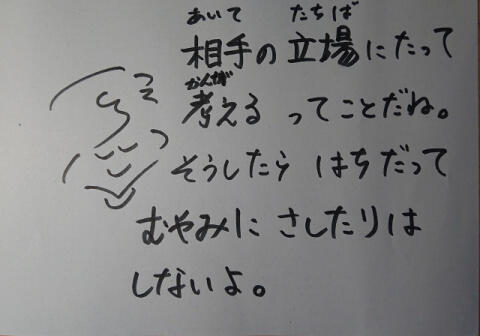 あいて たちば
相手の立場にたって
かんが
考える ってことだね。
そうしたら はちだって
むやみに さしたりは
しないよ。